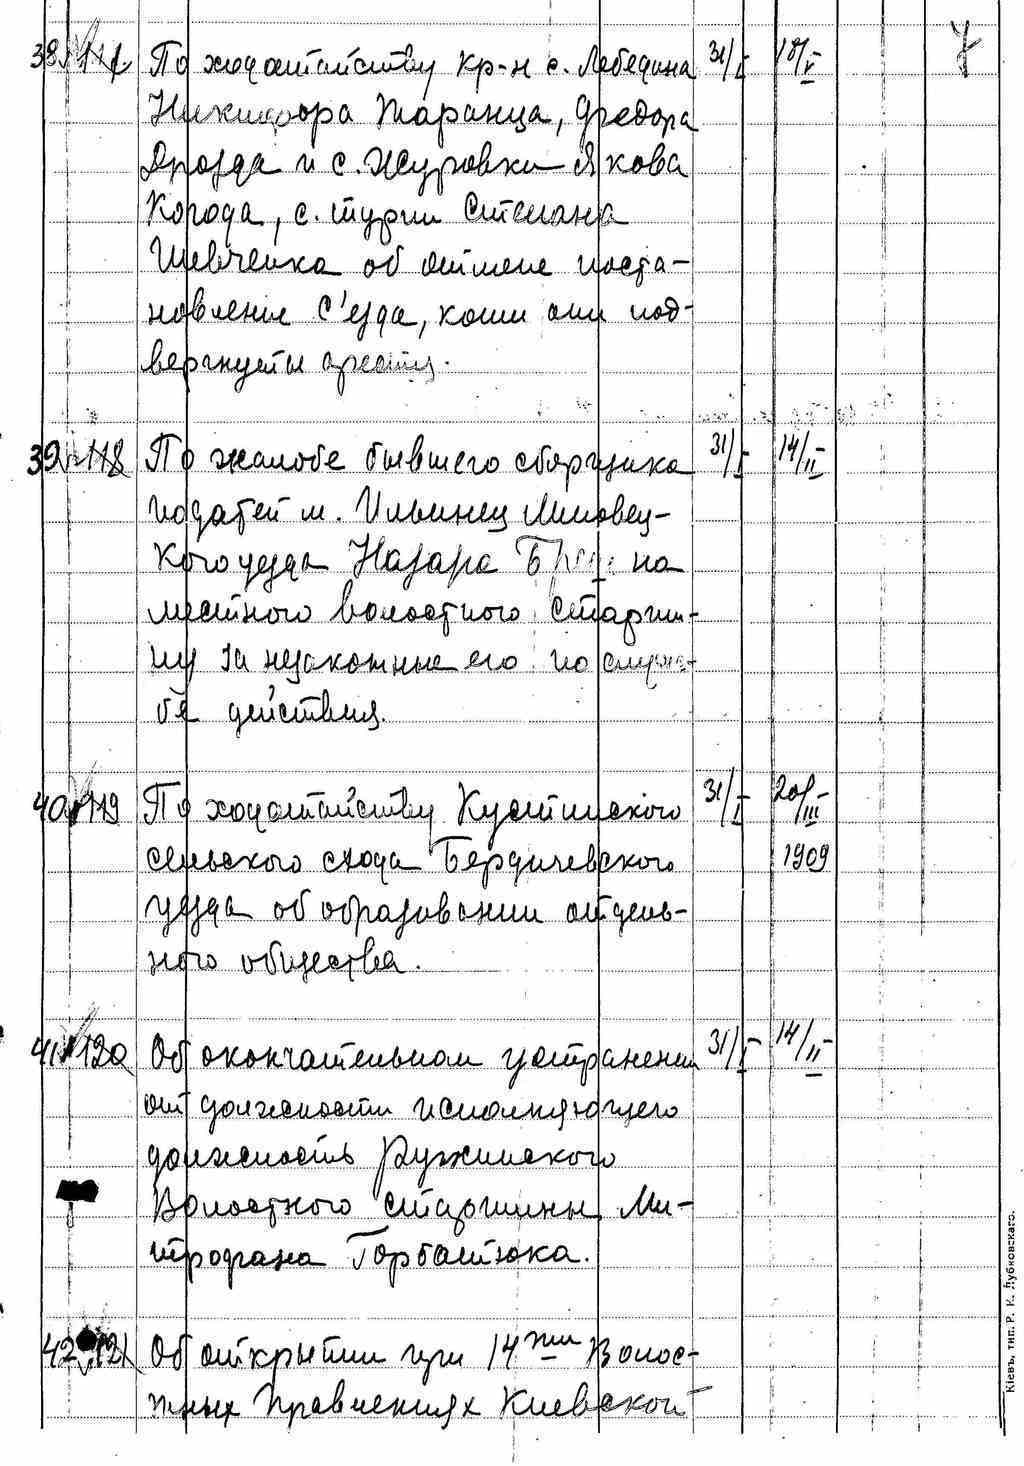 7
38 117 По ходатайству кр-н с. Лебедина 31/I 18/V
Никифора Таранца, Федора
Дрозда и с. Журовки Якова
Когода, с. Турии Степана
Шевченка об отмене поста-
новление с'езда, коим они под-
вергнуты аресту.
39 118 По жалобе бывшего сборщика 31/I 14/II
податей м. Ильинец Липовец-
кого уезда Назара на
местного волостного старши-
ну за незаконные его по служ-
бе действия.
40 119 По ходатайству Кустинского 31/I 20/III
сельского схода Бердичевского 1909
уезда об образовании отдель-
ного общества.
41 120 Об окончательном устранении 31/I 14/II
от должности исполняющего
должность Ружинского
Волостного старшины Ми-
трофана Горбатюка.
42 121 Об открытии при 14ти Волос-
тных Правлениях Киевской
Кіевъ, тип. Р. К. Лубковскаго.